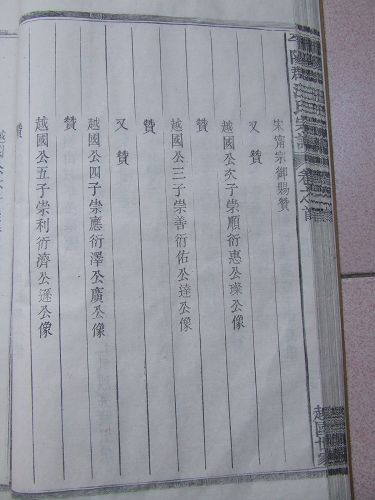 平陽郡汪氏宗譜 卷之首
宋甯宗御賜贊
又贊
越國公次子崇順衍惠公璨公像
贊
越國公三子崇善衍佑公達公像
贊
又贊
越國公四子崇應衍澤公廣公像
贊
越國公五子崇利衍濟公遜公像
贊
越國